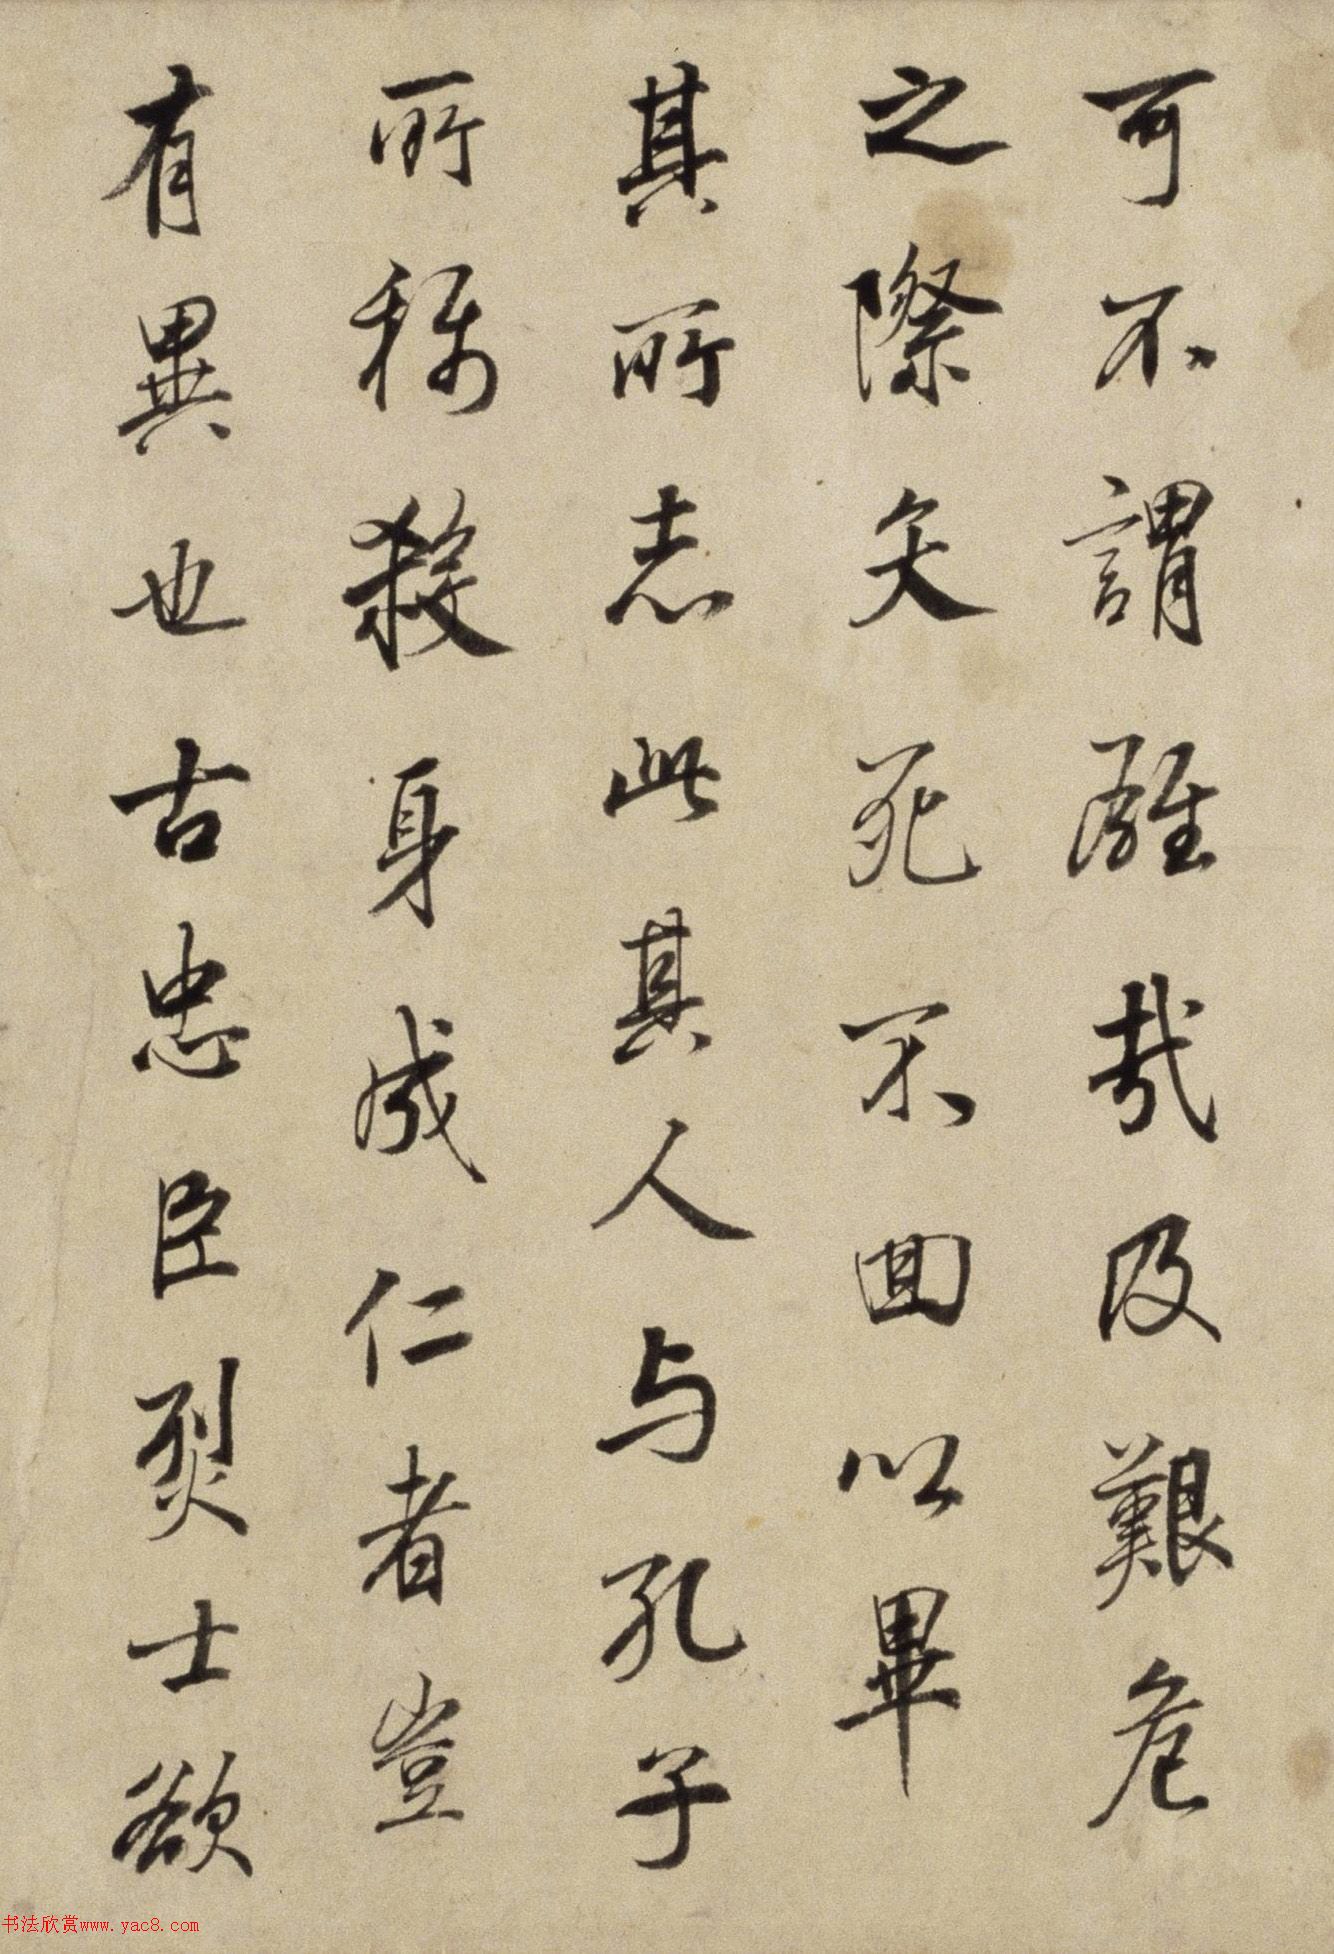 可不謂難哉及艱危
之際矢死不回以畢
其所志此其人与孔子
所稱殺身成仁者豈
有異也古忠臣烈士欲
书法欣赏www.yac8.com